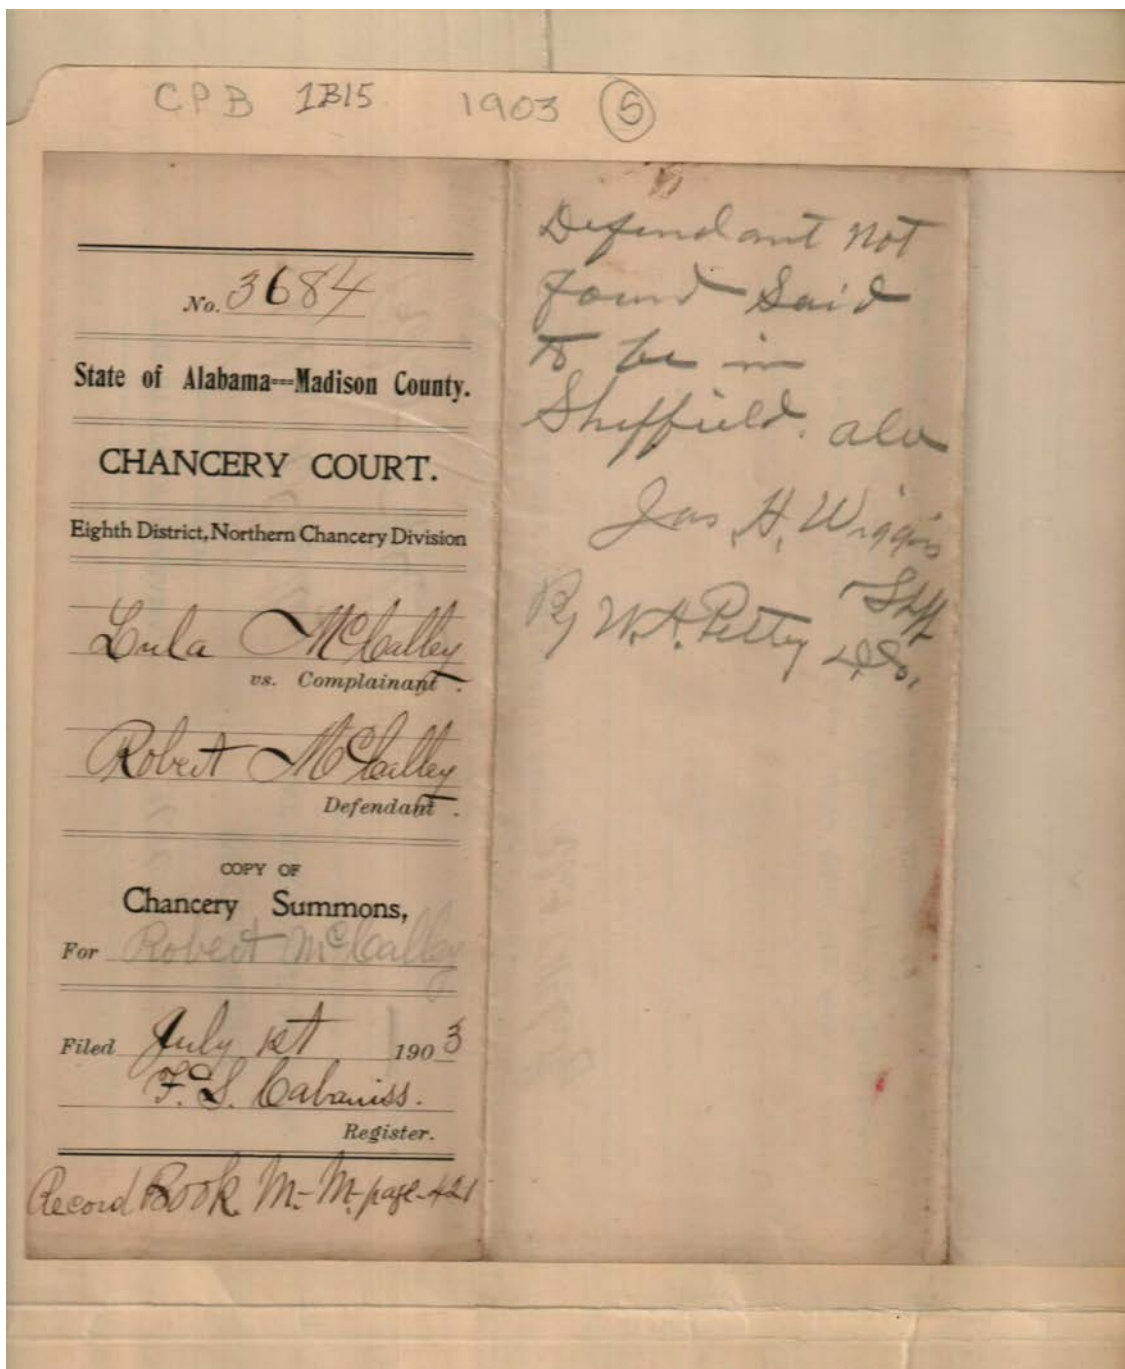 CPB 1B15 1903 5
No. 3684
State of Alabama--Madison County.
CHANCERY COURT.
Eighth District, Northern Chancery Division
Lula McCalley
vs. Complainant.
Robert McCalley
Defendant.
COPY OF
Chancery Summons,
For Robert McCalley
Filed July 1st 1903
F. S. Cabaniss.
Register.
Record Book M.-M. page 421
Defendant Not
found Said
to be in
Sheffield. ala
Jas. H. Wiggins
Shff
By W. A. Petty D.S.